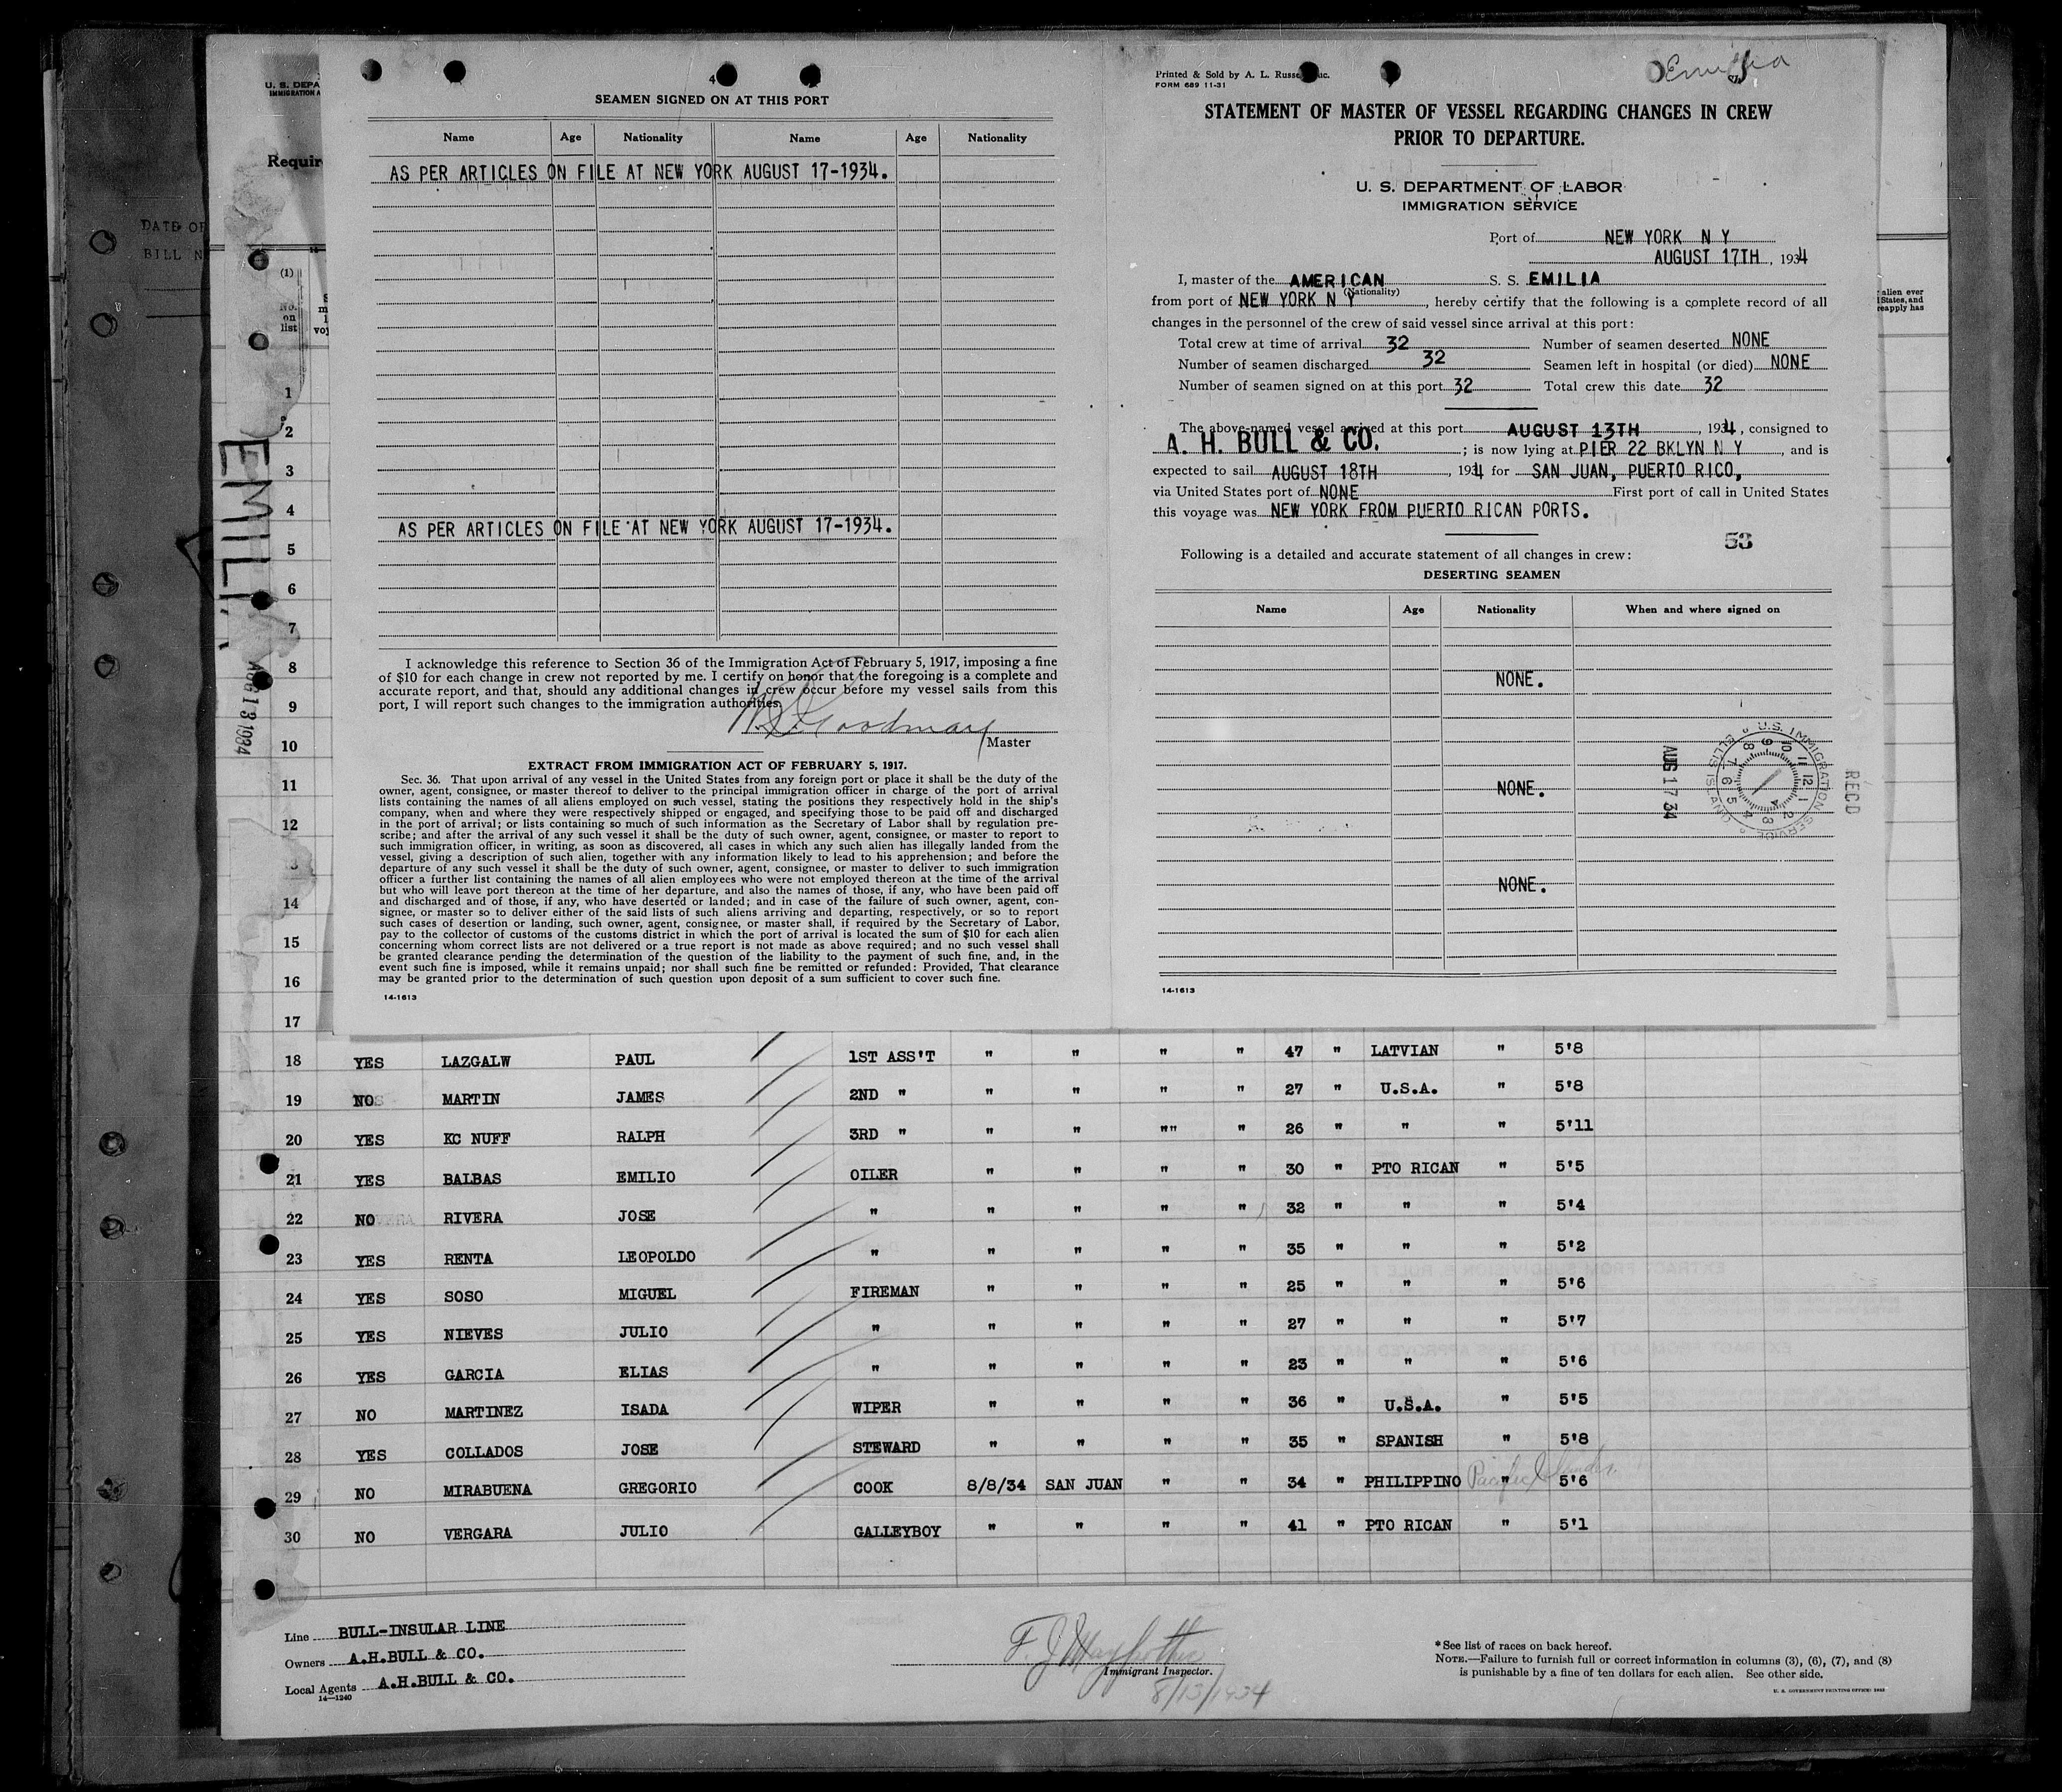 U. S. DEPA
IMMIGRATION A
Requir
DATE OF
BILL N
(1)
No.
on
list
4
SEAMEN SIGNED ON AT THIS PORT
Name Age Nationality Name Age Nationality
AS PER ARTICLES ON FILE AT NEW YORK AUGUST 17-1934.
AS PER ARTICLES ON FILE AT NEW YORK AUGUST 17-1934.
I acknowledge this reference to Section 36 of the Immigration Act of February 5, 1917, imposing a fine
of $10 for each change in crew not reported by me. I certify on honor that the foregoing is a complete and
accurate report, and that, should any additional changes in crew occur before my vessel sails from this
port, I will report such changes to the immigration authorities.
Goodman
Master
EXTRACT FROM IMMIGRATION ACT OF FEBRUARY 5, 1917.
Sec. 36. That upon arrival of any vessel in the United States from any foreign port or place it shall be the duty of the
owner, agent, consignee, or master thereof to deliver to the principal immigration officer in charge of the port of arrival
lists containing the names of all aliens employed on such vessel, stating the positions they respectively hold in the ship's
company, when and where they were respectively shipped or engaged, and specifying those to be paid off and discharged
in the port of arrival; or lists containing so much of such information as the Secretary of Labor shall by regulation pre-
scribe; and after the arrival of any such vessel it shall be the duty of such owner, agent, consignee, or master to report to
such immigration officer, in writing, as soon as discovered, all cases in which any such alien has illegally landed from the
vessel, giving a description of such alien, together with any information likely to lead to his apprehension; and before the
departure of any such vessel it shall be the duty of such owner, agent, consignee, or master to deliver to such immigration
officer a further list containing the names of all alien employees who were not employed thereon at the time of the arrival
but who will leave port thereon at the time of her departure, and also the names of those, if any, who have been paid off
and discharged and of those, if any, who have deserted or landed; and in case of the failure of such owner, agent, con-
signee, or master so to deliver either of the said lists of such aliens arriving and departing, respectively, or so to report
such cases of desertion or landing, such owner, agent, consignee, or master shall, if required by the Secretary of Labor,
pay to the collector of customs of the customs district in which the port of arrival is located the sum of $10 for each alien
concerning whom correct lists are not delivered or a true report is not made as above required; and no such vessel shall
be granted clearance pending the determination of the question of the liability to the payment of such fine, and, in the
event such fine is imposed, while it remains unpaid; nor shall such fine be remitted or refunded: Provided, That clearance
may be granted prior to the determination of such question upon deposit of a sum sufficient to cover such fine.
14-1613
Emilia
Printed & Sold by A. L. Russe nc.
FORM 689 11-31
STATEMENT OF MASTER OF VESSEL REGARDING CHANGES IN CREW
PRIOR TO DEPARTURE.
U. S. DEPARTMENT OF LABOR
IMMIGRATION SERVICE
Port of NEW YORK N Y
AUGUST 17TH, 1934
I, master of the AMERICAN S. S. EMILIA
(Nationality)
from port of NEW YORK N Y, hereby certify that the following is a complete record of all
changes in the personnel of the crew of said vessel since arrival at this port:
Total crew at time of arrival 32 Number of seamen deserted NONE
Number of seamen discharged 32 Seamen left in hospital (or died) NONE
Number of seamen signed on at this port 32 Total crew this date 32
The above-named vessel arrived at this port AUGUST 13TH, 1934, consigned to
A. H. BULL & CO.; is now lying at PIER 22 BKLYN N Y, and is
expected to sail AUGUST 18TH, 1934 for SAN JUAN, PUERTO RICO,
via United States port of NONE First port of call in United States
this voyage was NEW YORK FROM PUERTO RICAN PORTS.
53
Following is a detailed and accurate statement of all changes in crew:
DESERTING SEAMEN
Name Age Nationality When and where signed on
NONE.
NONE.
NONE.
AUG 17 34
U.S. IMMIGRATION SERVICE ELLIS ISLAND
RECD
14-1613
alien ever
States, and
reapply has
EMILI
AUG 13 1934
1
2
3
4
5
6
7
8
9
10
11
12
3
14
15
16
17
18 YES LAZGALW PAUL 1ST ASS'T " " " " 47 " LATVIAN " 5'8
19 NO MARTIN JAMES 2ND " " " " " 27 " U.S.A. " 5'8
20 YES KC NUFF RALPH 3RD " " " "" " 26 " " " 5'11
21 YES BALBAS EMILIO OILER " " " " 30 " PTO RICAN " 5'5
22 NO RIVERA JOSE " " " " " 32 " " " 5'4
23 YES RENTA LEOPOLDO " " " " " 35 " " " 5'2
24 YES SOSO MIGUEL FIREMAN " " " " 25 " " " 5'6
25 YES NIEVES JULIO " " " " " 27 " " " 5'7
26 YES GARCIA ELIAS " " " " " 23 " " " 5'6
27 NO MARTINEZ ISADA WIPER " " " " 36 " U.S.A. " 5'5
28 YES COLLADOS JOSE STEWARD " " " " 35 " SPANISH " 5'8
29 NO MIRABUENA GREGORIO COOK 8/8/34 SAN JUAN " " 34 " PHILIPPINO Pacific Islander " 5'6
30 NO VERGARA JULIO GALLEYBOY " " " " 41 " PTO RICAN " 5'1
Line BULL-INSULAR LINE
Owners A.H.BULL & CO.
Local Agents A.H.BULL & CO.
14-1240
F. J.
Immigrant Inspector.
8/13/1934
*See list of races on back hereof.
NOTE.—Failure to furnish full or correct information in columns (3), (6), (7), and (8)
is punishable by a fine of ten dollars for each alien. See other side.
U. S. GOVERNMENT PRINTING OFFICE